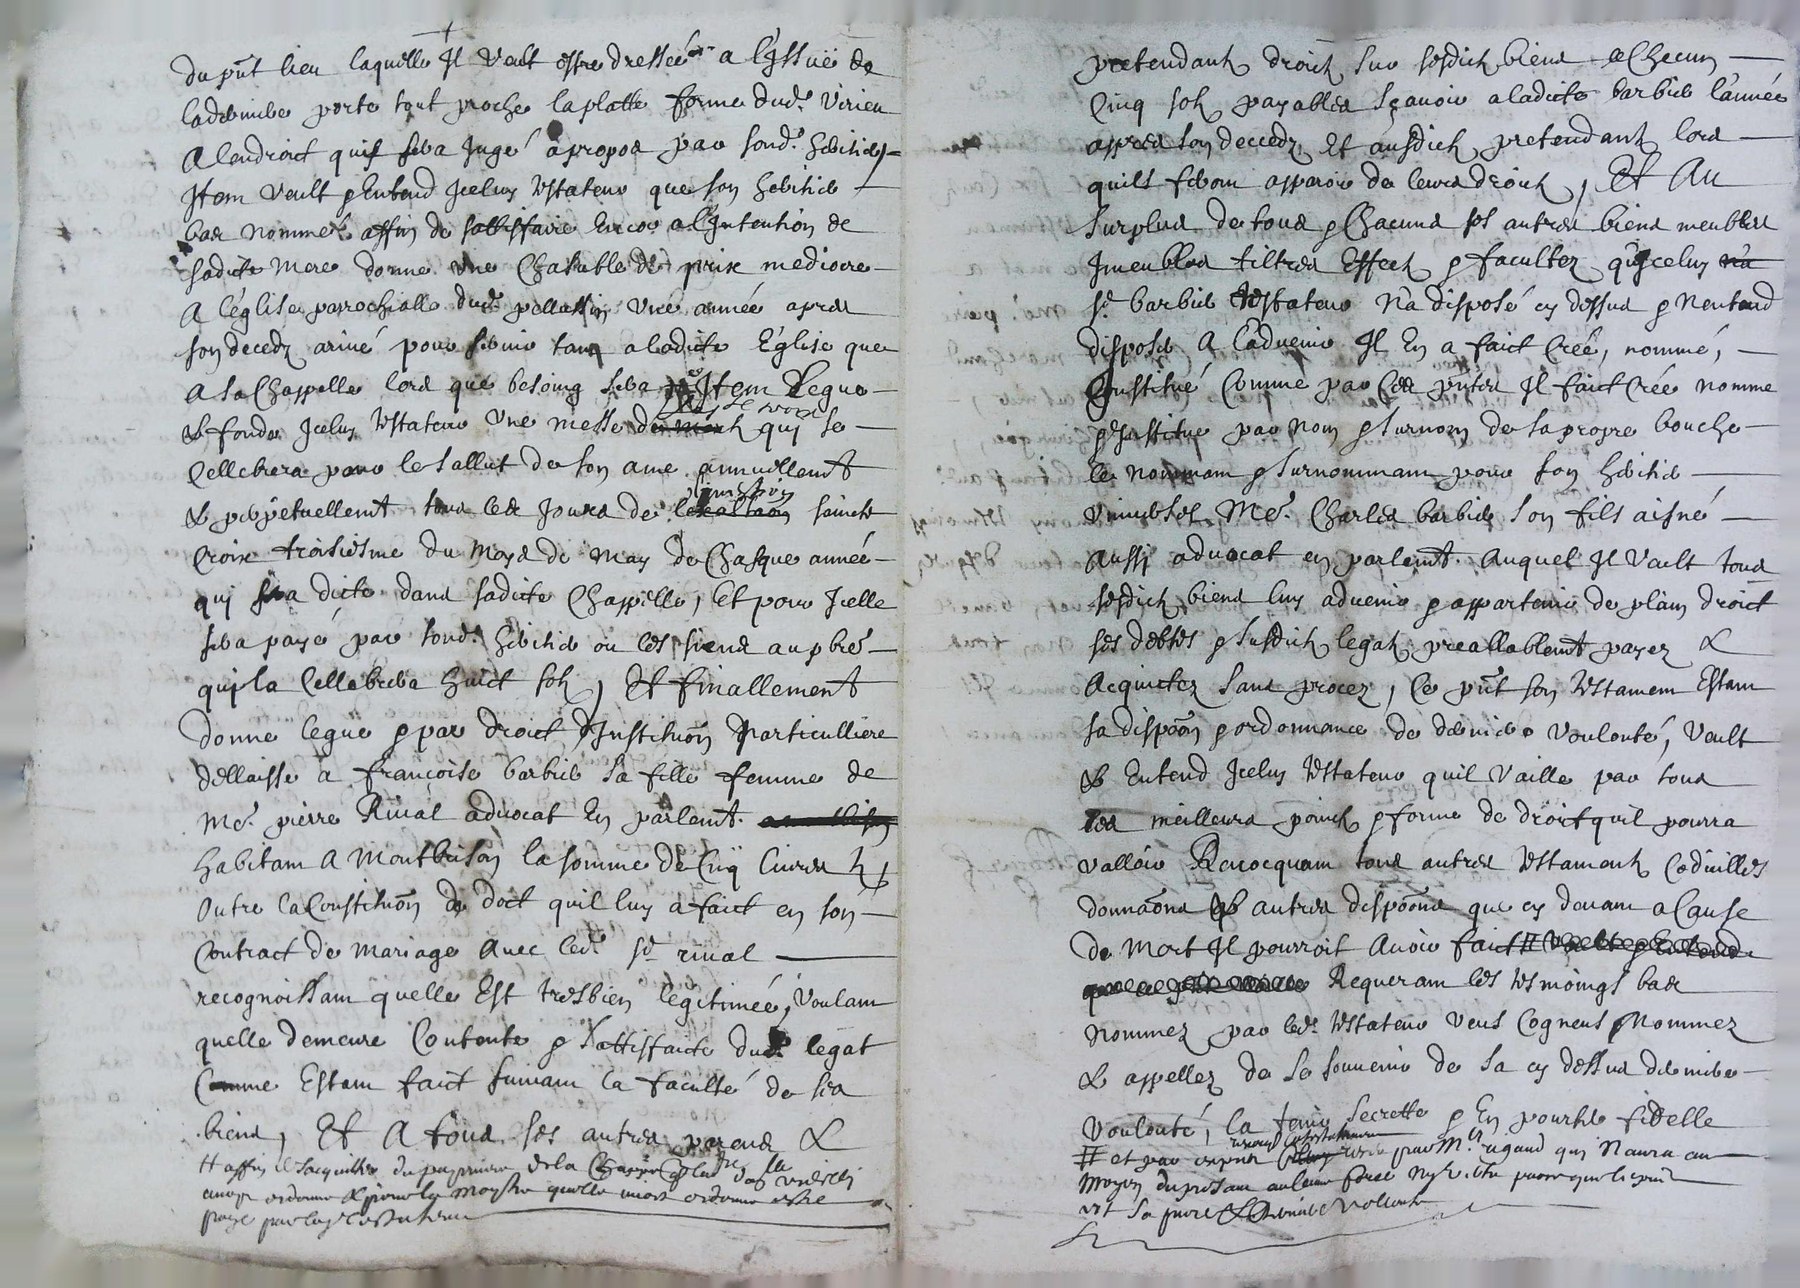 du pñt lieu laquelle Il veult estre dressée a l'Issuë de
laderniere porte tout proche la platte forme dud. Virieu
a lendroict quil sera Jugé apropos par sond. heritier
Item veult & Entend Jceluy testateur que son heritier
bas nommé affin de sattisfaire Encor a l'Intention de
sadicte Mere donne une Chasuble de prix mediocre
a l'église parrochialle dud. pellussin une année apres
son decedz arivé pour servir tant a ladicte Eglise que
a sa Chappelle lors que besoing sera Item Legue
& fonde Jceluy testateur une messe qui se
Cellebrera pour le sallut de son ame annuellemt
& perpetuellemt tous les Jours de linvention saincte
Croix troisiesme du Moys de May de Chasque année
qui sera dicte dans sadicte Chappelle, Et pour Jcelle
sera payé par sond. heritier ou les siens au pbre
qui la Cellebrera huict solz, Et finallement
donne legue & par droict dInstituõn particulliere
dellaisse a françoise barbier sa fille femme de
Me. pierre Rival advocat En parlemt.
habitant a Montbrison la somme de Cinq livres
Outre la Constitution de doct quil luy a faict en son
Contract de Mariage avec led. sr. rival
recognoissant quelle Est tresbien legitimée, Voulant
quelle demeure Contente & sattisfaicte dud. legat
Comme Estant faict suivant la faculté de ses
biens, Et A tous ses autres parens &
# affin de sacquitter du
paye par
pretendantz droictz sur sesdictz biens a Chacun
Cinq solz payables sçavoir aladicte barbier l'année
appres son decedz Et ausdictz pretendantz lors
quilz feront apparoir de leurs droictz, Et Au
surplus de tous & Chacuns ses autres biens meubles
Jmeubles tiltres Effectz & facultez qu'jceluy na
sr. barbier testateur n'a disposé cy dessus & Nentend
disposer A l'advenir Il En a faict Créé, nommé,
Constitué Comme par Ces pñtes Il faict Crée nomme
& Jnstitue par Nom & surnom de sa propre bouche
les Nommant & surnommant pour son heritier
Universel Me. Charles barbier son fils aisné
Aussy advocat en parlemt. Auquel Il Vault tous
sesdictz biens luy advenir & appartenir de plain droict
ses debtes & susdictz legatz preallablemt payez &
Acquictez sans procez, Ce pñt son testament Estant
sa dispõon & ordonnance de derniere voulonté, Vault
& Entend Jceluy testateur quil Vaille par tous
les meilleurs poinctz & forme de droict quil pourra
valloir Revocquant tous autres testamentz Codicilles
donnãons & autres dispõons que cy devant a Cause
de Mort Il pourroit Avoir faict # Vault & Entend
Requerant les tesmoings bas
Nommez par led. testateur Veus Cogneus & Nommez
& appellez de se souvenir de sa cy dessus derniere
Voulonté, la tenir secrette & En pourter fidelle
# et par expres par Mr. rigaud qui Naura au
moyen du presant aulcune force
est sa pure & derniere vollonte